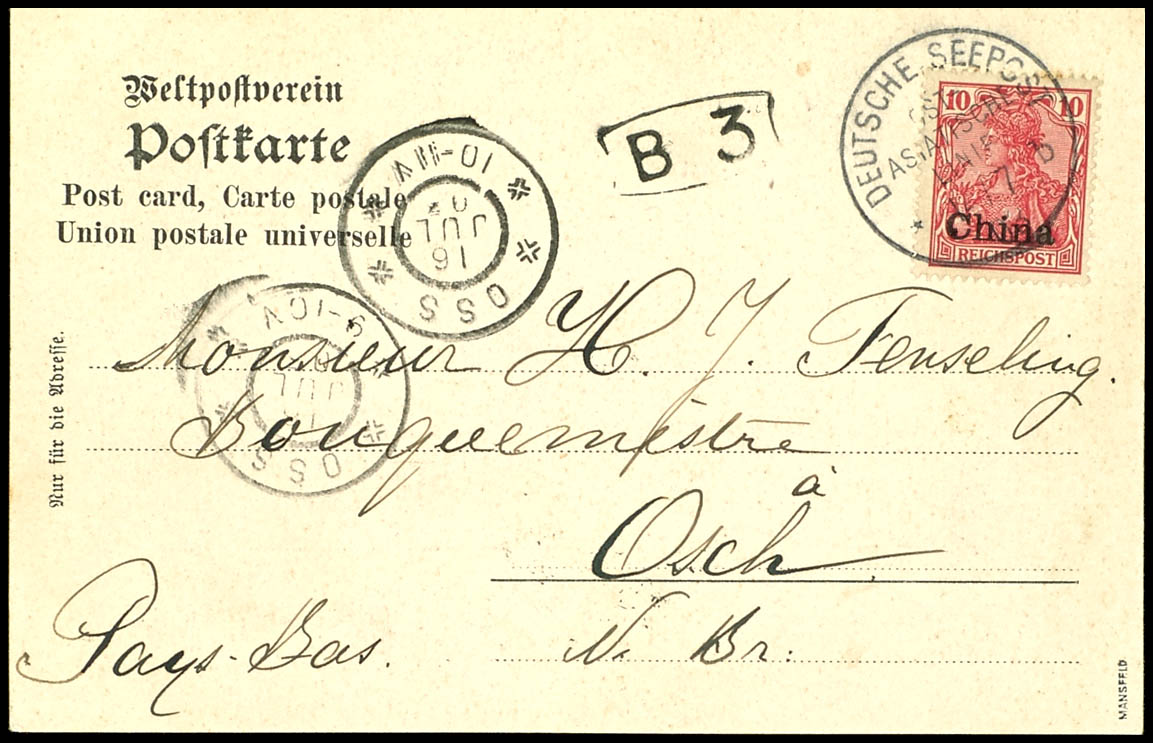 Weltpostverein
Postkarte
Post card, Carte postale
Union postale universelle
B 3
DEUTSCHE SEEPOST
10 10
China
REICHSPOST
10-IIIV
JUL
16
OSS
9-10V
JUL
OSS
Nur für die Adresse.
Monsieur H. J. Fenseling.
Bourguemestre
à
Osch
N. Br.
Pays-Bas.
MANSFELD